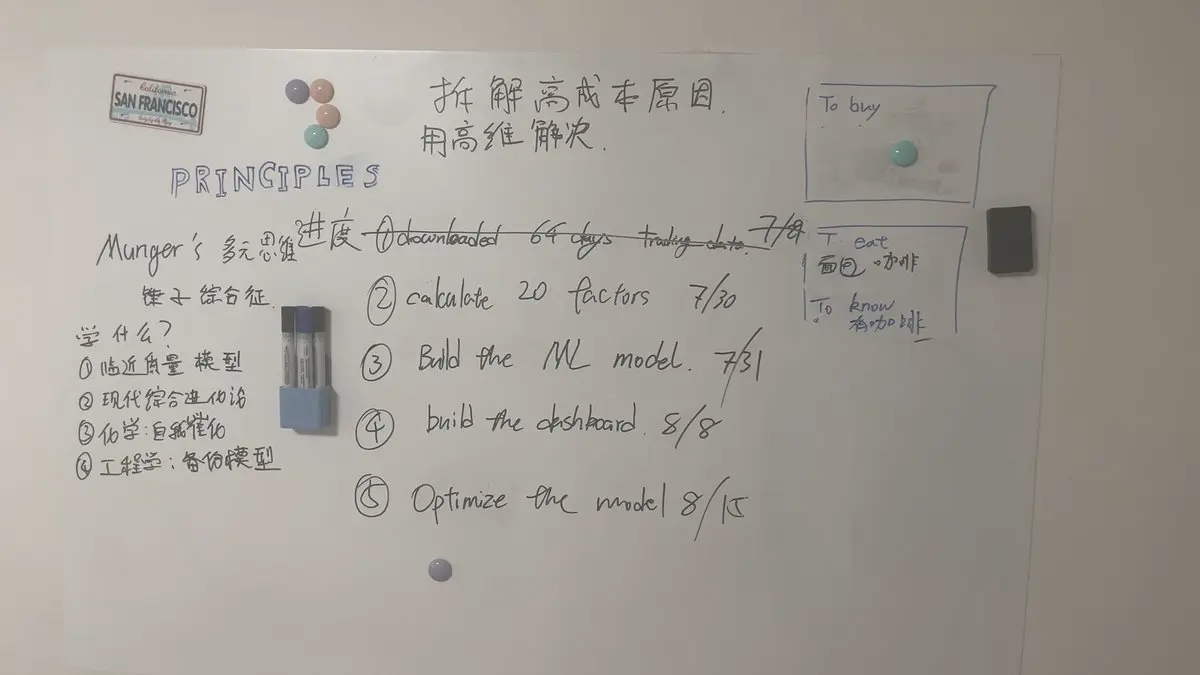 California
SAN FRANCISCO
拆解高成本原因.
用高维解决.
PRINCIPLES
Munger's 多元思维
锤子综合征.
学什么?
① 临近质量模型
② 现代综合进化论
③ 化学:自我催化
④ 工程学:备份模型
进度 ① downloaded 64 days trading data. 7/29
② calculate 20 factors 7/30
③ Build the ML model. 7/31
④ build the dashboard. 8/8
⑤ Optimize the model 8/15
To buy
T. eat
面包 咖啡
To know
有咖啡